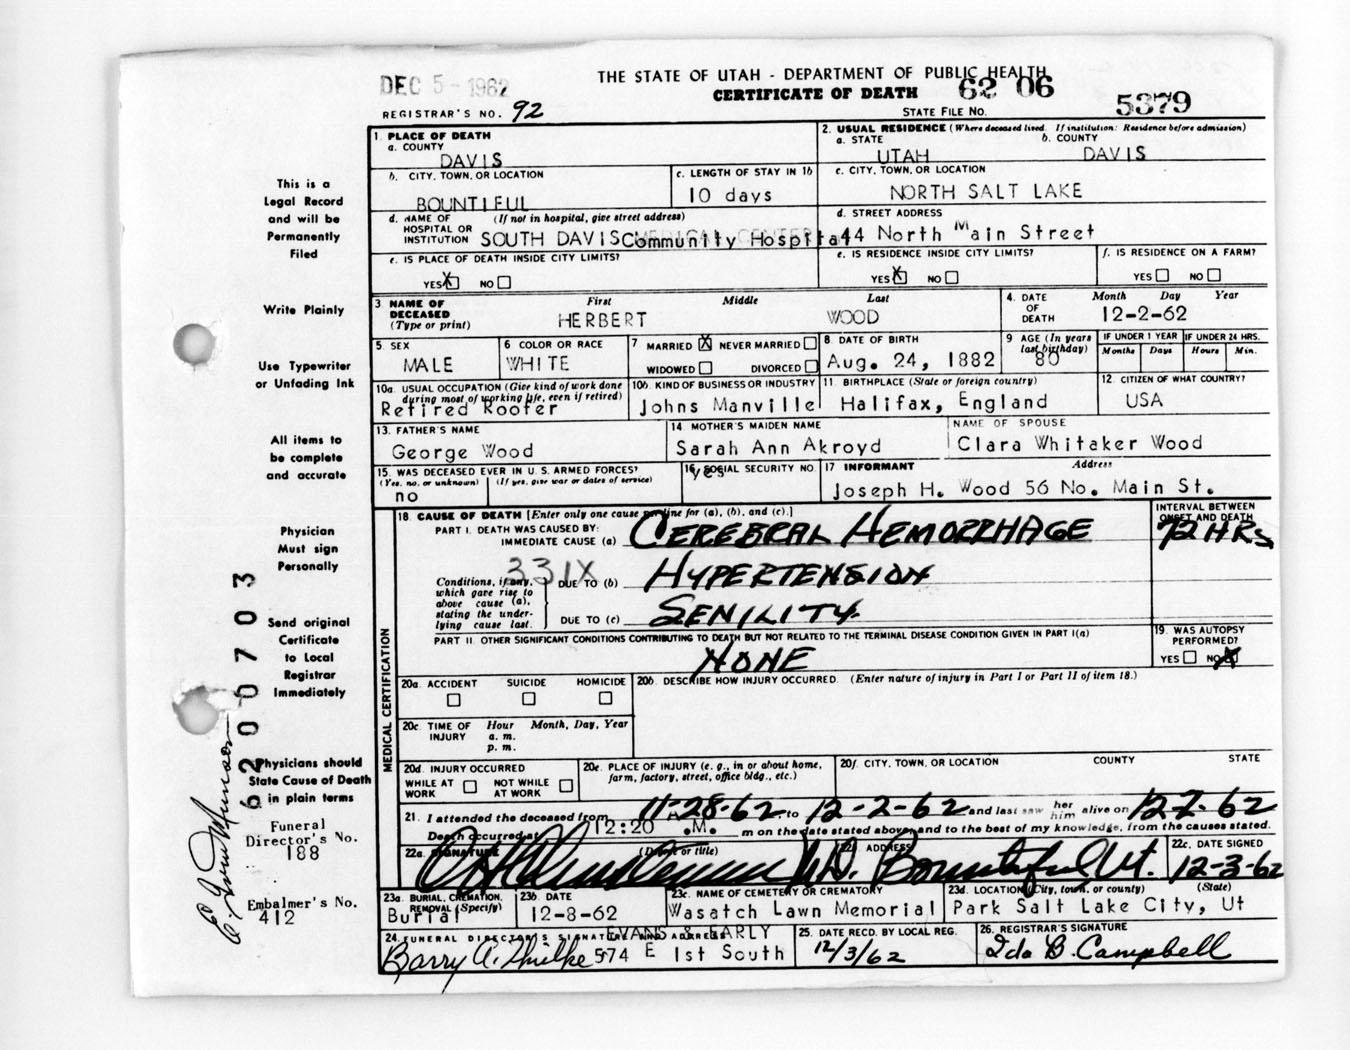 DEC 5 - 1962
THE STATE OF UTAH - DEPARTMENT OF PUBLIC HEALTH
CERTIFICATE OF DEATH
62 06
5379
REGISTRAR'S NO. 92
STATE FILE NO.
1. PLACE OF DEATH
a. COUNTY
DAVIS
2. USUAL RESIDENCE (Where deceased lived. If institution: Residence before admission)
a. STATE
UTAH
b. COUNTY
DAVIS
b. CITY, TOWN, OR LOCATION
BOUNTIFUL
c. LENGTH OF STAY IN 1b
10 days
c. CITY, TOWN, OR LOCATION
NORTH SALT LAKE
d. NAME OF HOSPITAL OR INSTITUTION
(If not in hospital, give street address)
SOUTH DAVIS Community Hospital
d. STREET ADDRESS
44 North Main Street
e. IS PLACE OF DEATH INSIDE CITY LIMITS?
YES X NO
e. IS RESIDENCE INSIDE CITY LIMITS?
YES X NO
f. IS RESIDENCE ON A FARM?
YES NO
3 NAME OF DECEASED
(Type or print)
First
HERBERT
Middle
Last
WOOD
4. DATE OF DEATH
Month Day Year
12-2-62
5 SEX
MALE
6 COLOR OR RACE
WHITE
7 MARRIED X NEVER MARRIED
WIDOWED DIVORCED
8 DATE OF BIRTH
Aug. 24, 1882
9 AGE (In years last birthday)
80
IF UNDER 1 YEAR
Months Days
IF UNDER 24 HRS.
Hours Min.
10a. USUAL OCCUPATION (Give kind of work done during most of working life, even if retired)
Retired Roofer
10b. KIND OF BUSINESS OR INDUSTRY
Johns Manville
11. BIRTHPLACE (State or foreign country)
Halifax, England
12. CITIZEN OF WHAT COUNTRY?
USA
13. FATHER'S NAME
George Wood
14 MOTHER'S MAIDEN NAME
Sarah Ann Akroyd
NAME OF SPOUSE
Clara Whitaker Wood
15. WAS DECEASED EVER IN U. S. ARMED FORCES?
(Yes, no, or unknown) (If yes, give war or dates of service)
no
16. SOCIAL SECURITY NO.
yes
17 INFORMANT
Address
Joseph H. Wood 56 No. Main St.
MEDICAL CERTIFICATION
18. CAUSE OF DEATH [Enter only one cause per line for (a), (b), and (c).]
PART I. DEATH WAS CAUSED BY:
IMMEDIATE CAUSE (a) CEREBRAL HEMORRHAGE
INTERVAL BETWEEN ONSET AND DEATH
72 HRS
331X
Conditions, if any, which gave rise to above cause (a), stating the underlying cause last.
DUE TO (b) HYPERTENSION
DUE TO (c) SENILITY.
PART II. OTHER SIGNIFICANT CONDITIONS CONTRIBUTING TO DEATH BUT NOT RELATED TO THE TERMINAL DISEASE CONDITION GIVEN IN PART I(a)
NONE
19. WAS AUTOPSY PERFORMED?
YES NO X
20a. ACCIDENT SUICIDE HOMICIDE
20b. DESCRIBE HOW INJURY OCCURRED. (Enter nature of injury in Part I or Part II of item 18.)
20c. TIME OF INJURY
Hour Month, Day, Year
a. m.
p. m.
20d. INJURY OCCURRED
WHILE AT WORK NOT WHILE AT WORK
20e. PLACE OF INJURY (e. g., in or about home, farm, factory, street, office bldg., etc.)
20f. CITY, TOWN, OR LOCATION COUNTY STATE
21. I attended the deceased from 11-28-62 to 12-2-62 and last saw her him alive on 12-2-62
Death occurred at 12:20 A.M. m on the date stated above, and to the best of my knowledge, from the causes stated.
22a. SIGNATURE
(Degree or title)
M.D.
22b. ADDRESS
Bountiful Ut.
22c. DATE SIGNED
12-3-62
23a. BURIAL, CREMATION, REMOVAL (Specify)
Burial
23b. DATE
12-8-62
23c. NAME OF CEMETERY OR CREMATORY
Wasatch Lawn Memorial
23d. LOCATION (City, town, or county) (State)
Park Salt Lake City, Ut
24. FUNERAL DIRECTOR'S SIGNATURE AND ADDRESS
EVANS & EARLY
Barry A. 574 E 1st South
25. DATE RECD. BY LOCAL REG.
12/3/62
26. REGISTRAR'S SIGNATURE
Ida B. Campbell
This is a
Legal Record
and will be
Permanently
Filed
Write Plainly
Use Typewriter
or Unfading Ink
All items to
be complete
and accurate
Physician
Must sign
Personally
Send original
Certificate
to Local
Registrar
Immediately
Physicians should
State Cause of Death
in plain terms
Funeral
Director's No.
188
Embalmer's No.
412
6200703